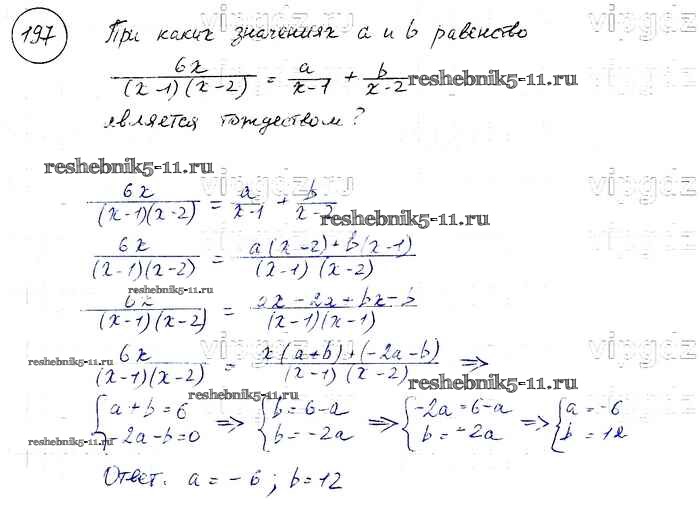 197 При каких значениях a и b равенство
6x/((x-1)(x-2)) = a/(x-1) + b/(x-2) reshebnik5-11.ru
является тождеством?
reshebnik5-11.ru
6x/((x-1)(x-2)) = a/(x-1) + b/(x-2)
reshebnik5-11.ru
6x/((x-1)(x-2)) = (a(x-2)+b(x-1))/((x-1)(x-2))
reshebnik5-11.ru
6x/((x-1)(x-2)) = (ax-2x+bx-b)/((x-1)(x-1))
6x/((x-1)(x-2)) = (x(a+b)+(-2a-b))/((x-1)(x-2)) =>
reshebnik5-11.ru
reshebnik5-11.ru
{a+b=6 => {b=6-a => {-2a=6-a => {a=-6
{-2a-b=0 {b=-2a {b=-2a {b=12
reshebnik5-11.ru
Ответ: a=-6; b=12
vipgdz
vipgdz
vipgdz
vipgdz